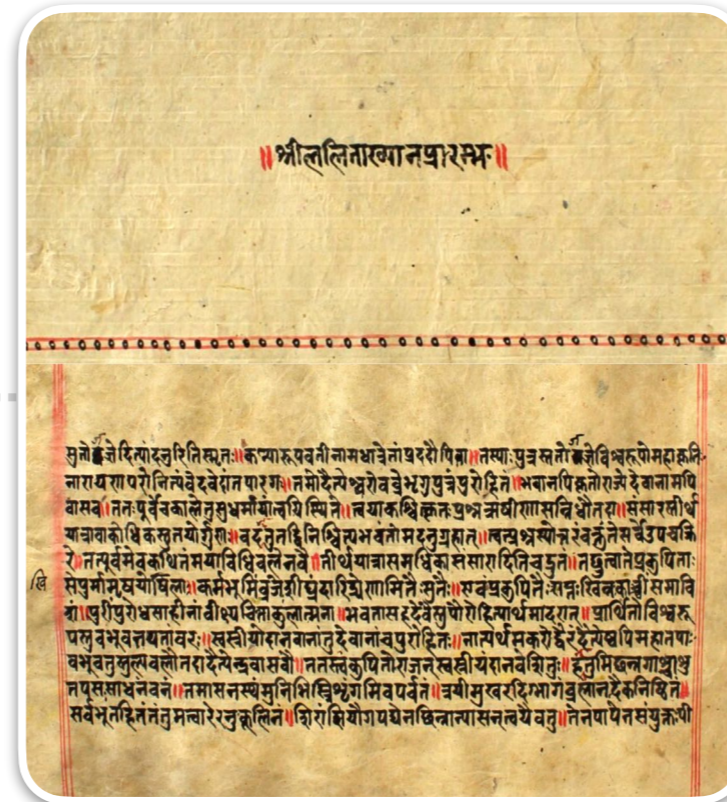 ॥श्रीललिताख्यानप्रारम्भः॥
सुतो दित्यां दनुरितिस्मृतः॥कन्यारूपवतीनामधात्रेतांप्रददौपिता॥तस्याःपुत्रस्ततोजज्ञेविश्वरूपोमहाद्युतिः
नारायणपरोनित्यंवेदवेदांतपारगः॥तमोदैत्येश्वरोवव्रेभृगुपुत्रंपुरोहितं॥भवानधिकृतोराज्येदेवानामपि
वासव॥ततःपूर्वेचकालेतुसुधर्मायांत्वयिस्थिते॥त्वयाकश्चित्कृतःप्रश्नऋषीणांसन्निधौतदा॥संसारस्तीर्थ
यात्रावाकोधिकस्तुतयोर्गुणः॥वदंतुतद्विनिश्चित्यभवंतोमदनुग्रहात्॥तत्प्रश्नस्योत्तरंवक्तुंतेसर्वेउपचक्रि
रे॥तत्पूर्वमेवकथितंमयाविधिबलेनवै॥तीर्थयात्रासमधिकासंसारादितिचद्रुतं॥तछ्रुत्वातेप्रकुपिताः
शेपुर्मामृषयोखिलाः॥कर्मभूमिंव्रजेःशीघ्रंदारिद्र्येणमितैःसुतैः॥एवंप्रकुपितैःशप्तःखिन्नःकांचींसमावि
शं॥पुरींपुरोधसाहीनांवीक्ष्यचिंताकुलात्मना॥भवतासहदेवैस्तुपौरोहित्यार्थमादरात्॥प्रार्थितोविश्वरू
पस्तुबभूवतपतांवरः॥स्वस्रीयोदानवानांतुदेवानांचपुरोहितः॥नात्यर्थमकरोद्वैरंदैत्येष्वपिमहातपाः
बभूवतुस्तुल्यबलौतदादैत्येन्द्रवासवौ॥ततस्त्वंकुपितोराजन्स्वस्रीयंदानवेशितुः॥हंतुमिछन्नगाश्चाशु
तपसःसाधनंवनं॥तमासनस्थंमुनिभिस्त्रिशृंगमिवपर्वतं॥त्रयीमुखरदिग्भागंब्रह्मानंदैकनिष्ठितं॥
सर्वभूतहितंतंतुमत्वा नुकूलितं॥शिरांसियौगपद्येनछिन्नान्यासन्त्वयैवतु॥तेनपापेनसंयुक्तःपी
खि